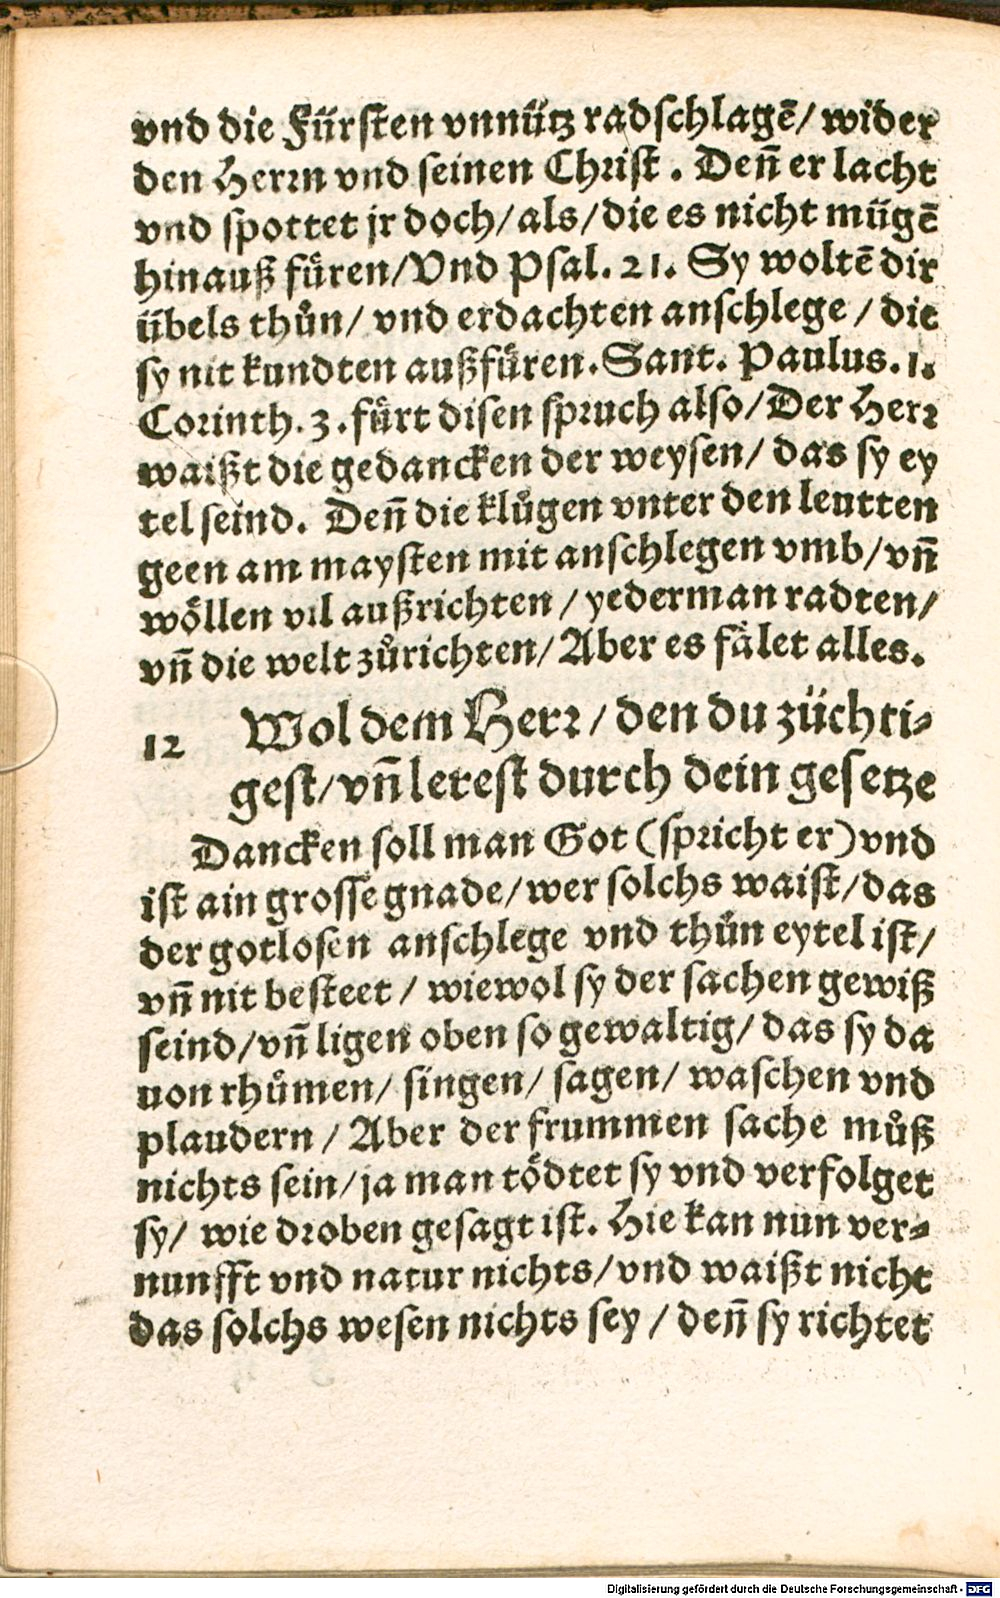 vnd die Fürsten vnnütz radschlagē/ wider
den Herrn vnd seinen Christ. Deñ er lacht
vnd spottet jr doch/als/die es nicht mügē
hinauß fuͤren/Vnd Psal. 21. Sy woltē dir
übels thuͦn/ vnd erdachten anschlege / die
sy nit kundten außfuͤren. Sant. Paulus. 1.
Corinth. 3. fuͤrt disen spruch also/Der Herr
waißt die gedancken der weysen/ das sy ey
tel seind. Deñ die kluͦgen vnter den leutten
geen am maysten mit anschlegen vmb/vñ
woͤllen vil außrichten / yederman radten/
vñ die welt zuͦrichten/ Aber es faͤlet alles.
12 Wol dem Herr/ den du züchti-
gest/vñ lerest durch dein gesetze
Dancken soll man Got (spricht er) vnd
ist ain grosse gnade/wer solchs waist/das
der gotlosen anschlege vnd thuͦn eytel ist/
vñ nit besteet / wiewol sy der sachen gewiß
seind/vñ ligen oben so gewaltig/ das sy da
uon rhuͦmen/ singen/ sagen/ waschen vnd
plaudern / Aber der frummen sache muͦß
nichts sein/ja man toͤdtet sy vnd verfolget
sy/ wie droben gesagt ist. Hie kan nun ver-
nunfft vnd natur nichts/vnd waißt nicht
das solchs wesen nichts sey / deñ sy richtet
Digitalisierung gefördert durch die Deutsche Forschungsgemeinschaft - DFG